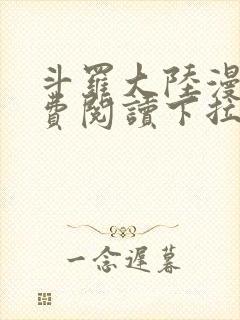 斗羅大陸漫
費閱讀下拉
一念遲暮